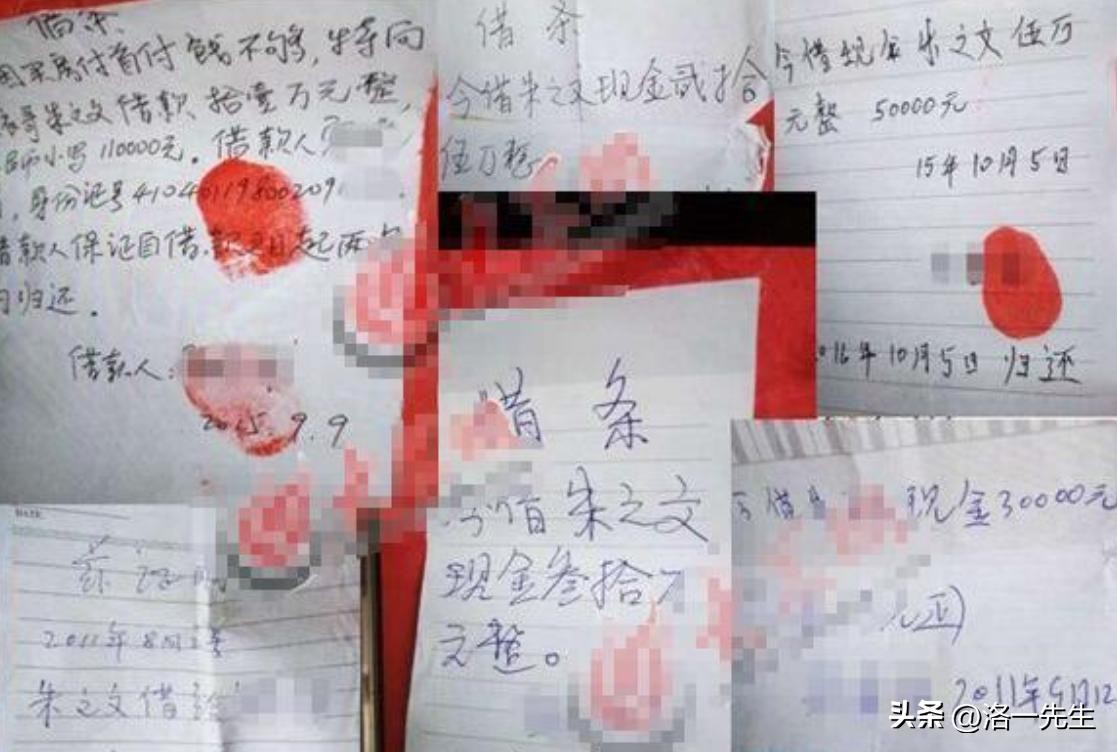 借条
因买房付首付钱不够,特向
表哥朱之文借款 拾壹万元整,
即小写110000元。借款人
身份证号41040119800209
借款人保证自借款之日起两
内归还。
借款人:
2015.9.9
借 条
今借朱之文现金贰拾
伍万整
今借现金朱之文伍万
元整 50000元
15年10月5日
016年10月5日 归还
借 条
今借朱之文
现金叁拾万
元整。
今借 现金30000元
元正
2011年
2011年8月
朱之文借给
头条 @洛一先生